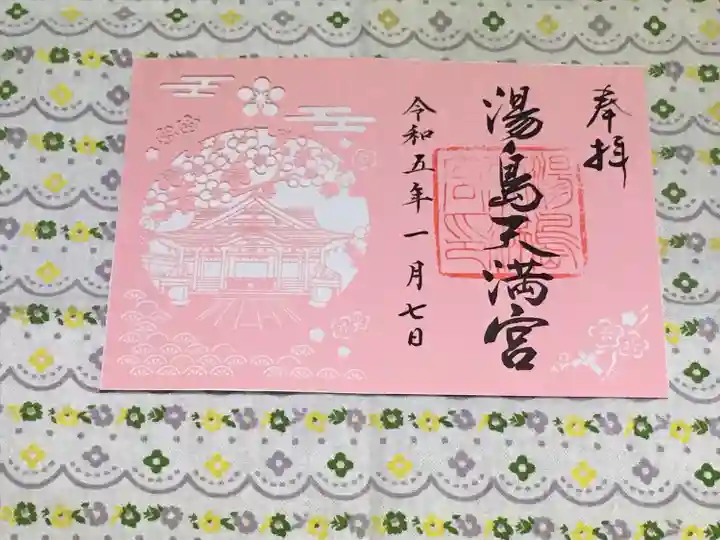 奉拝
湯島天満宮
令和五年一月七日